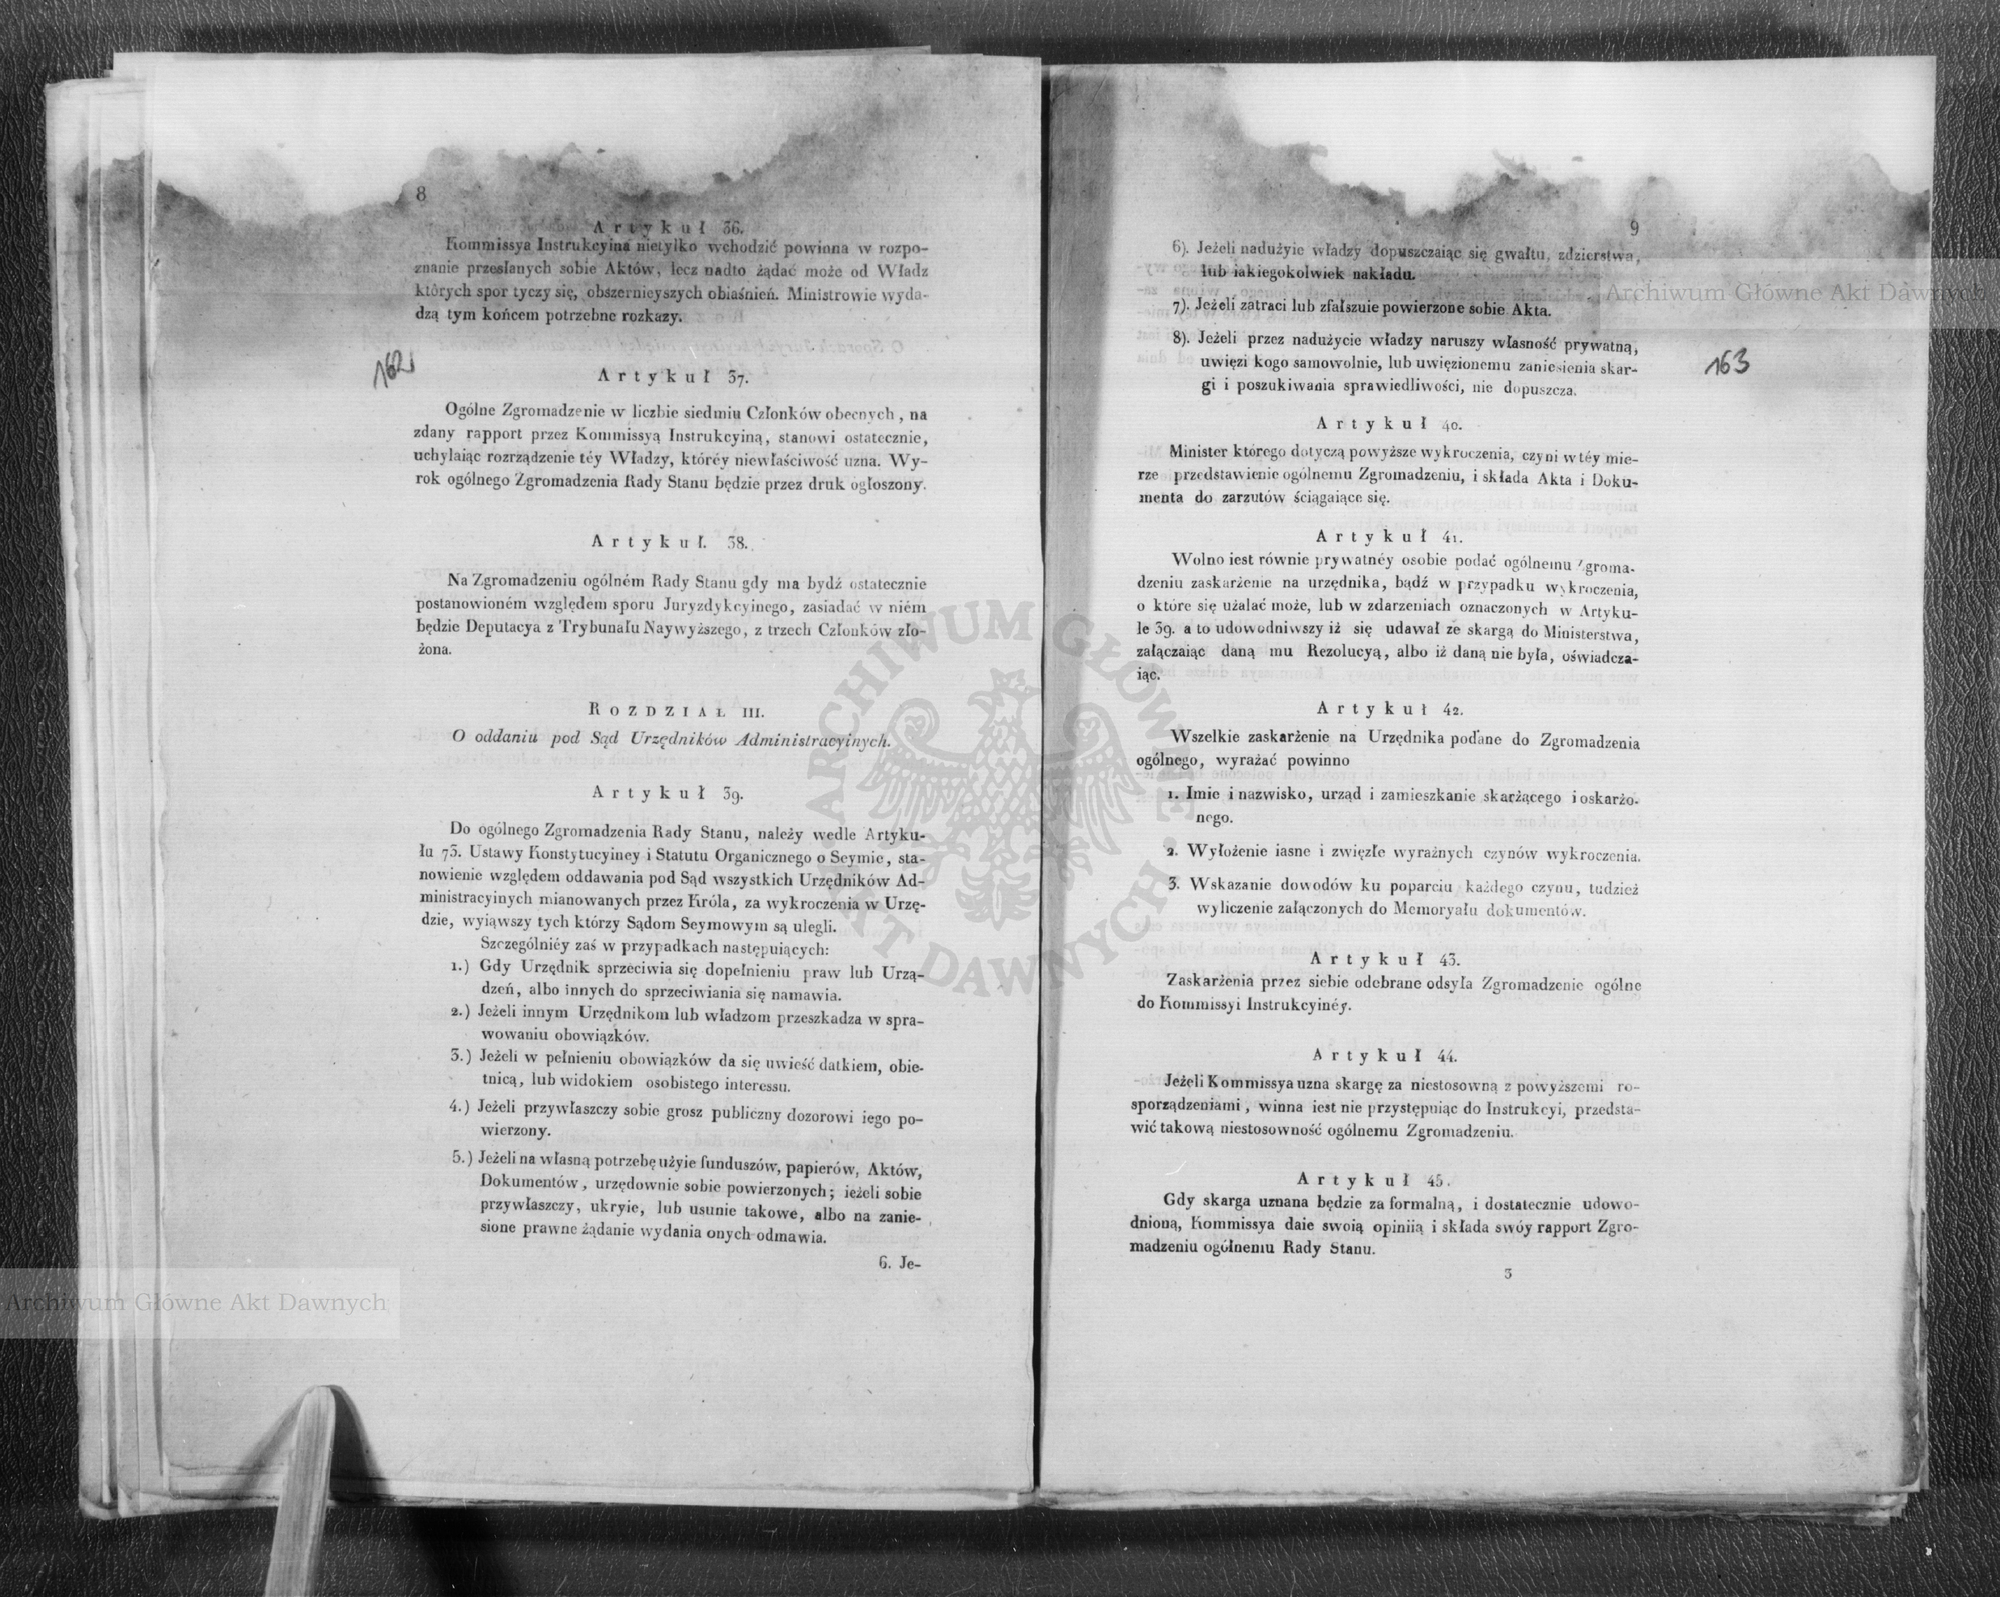 8
Artykuł 36.
Kommissya Instrukcyina nietylko wchodzić powinna w rozpo-
znanie przesłanych sobie Aktów, lecz nadto żądać może od Władz
których spor tyczy się, obszernieyszych obiaśnień. Ministrowie wyda-
dzą tym końcem potrzebne rozkazy.
162
Artykuł 37.
Ogólne Zgromadzenie w liczbie siedmiu Członków obecnych, na
zdany rapport przez Kommissyą Instrukcyiną, stanowi ostatecznie,
uchylaiąc rozrządzenie téy Władzy, któréy niewłaściwość uzna. Wy-
rok ogólnego Zgromadzenia Rady Stanu będzie przez druk ogłoszony.
Artykuł. 38.
Na Zgromadzeniu ogólném Rady Stanu gdy ma bydź ostatecznie
postanowioném względem sporu Juryzdykcyinego, zasiadać w niém
będzie Deputacya z Trybunału Naywyższego, z trzech Członków zło-
żona.
ROZDZIAŁ III.
O oddaniu pod Sąd Urzędników Administracyinych.
Artykuł 39.
Do ogólnego Zgromadzenia Rady Stanu, należy wedle Artyku-
łu 73. Ustawy Konstytucyiney i Statutu Organicznego o Seymie, sta-
nowienie względem oddawania pod Sąd wszystkich Urzędników Ad-
ministracyinych mianowanych przez Króla, za wykroczenia w Urzę-
dzie, wyiąwszy tych którzy Sądom Seymowym są ulegli.
Szczególniéy zaś w przypadkach następuiących:
1.) Gdy Urzędnik sprzeciwia się dopełnieniu praw lub Urzą-
dzeń, albo innych do sprzeciwiania się namawia.
2.) Jeżeli innym Urzędnikom lub władzom przeszkadza w spra-
wowaniu obowiązków.
3.) Jeżeli w pełnieniu obowiązków da się uwieść datkiem, obie-
tnicą, lub widokiem osobistego interessu.
4.) Jeżeli przywłaszczy sobie grosz publiczny dozorowi iego po-
wierzony.
5.) Jeżeli na własną potrzebę użyie funduszów, papierów, Aktów,
Dokumentów, urzędownie sobie powierzonych; ieżeli sobie
przywłaszczy, ukryie, lub usunie takowe, albo na zanie-
sione prawne żądanie wydania onych odmawia.
6. Je-
Archiwum Główne Akt Dawnych
9
6). Jeżeli nadużyie władzy dopuszczaiąc się gwałtu, zdzierstwa,
lub iakiegokolwiek nakładu.
7). Jeżeli zatraci lub zfałszuie powierzone sobie Akta.
8). Jeżeli przez nadużycie władzy naruszy własność prywatną,
uwięzi kogo samowolnie, lub uwięzionemu zaniesienia skar-
gi i poszukiwania sprawiedliwości, nie dopuszcza.
Archiwum Główne Akt Dawnych
163
Artykuł 40.
Minister którego dotyczą powyższe wykroczenia, czyni w téy mie-
rze przedstawienie ogólnemu Zgromadzeniu, i składa Akta i Doku-
menta do zarzutów ściągaiące się.
Artykuł 41.
Wolno iest równie prywatnéy osobie podać ogólnemu Zgroma-
dzeniu zaskarżenie na urzędnika, bądź w przypadku wykroczenia,
o które się użalać może, lub w zdarzeniach oznaczonych w Artyku-
le 39. a to udowodniwszy iż się udawał ze skargą do Ministerstwa,
załączaiąc daną mu Rezolucyą, albo iż daną nie była, oświadcza-
iąc.
Artykuł 42.
Wszelkie zaskarżenie na Urzędnika podane do Zgromadzenia
ogólnego, wyrażać powinno
1. Imie i nazwisko, urząd i zamieszkanie skarżącego i oskarżo-
nego.
2. Wyłożenie iasne i zwięzłe wyraźnych czynów wykroczenia.
3. Wskazanie dowodów ku poparciu każdego czynu, tudzież
wyliczenie załączonych do Memoryału dokumentów.
Artykuł 43.
Zaskarżenia przez siebie odebrane odsyła Zgromadzenie ogólne
do Kommissyi Instrukcyinéy.
Artykuł 44.
Jeżeli Kommissya uzna skargę za niestosowną z powyższemi ro-
sporządzeniami, winna iest nie przystępuiąc do Instrukcyi, przedsta-
wić takową niestosowność ogólnemu Zgromadzeniu.
Artykuł 45.
Gdy skarga uznana będzie za formalną, i dostatecznie udowo-
dnioną, Kommissya daie swoią opiniią i składa swóy rapport Zgro-
madzeniu ogólnemu Rady Stanu.
3
ARCHIWUM GŁÓWNE AKT DAWNYCH